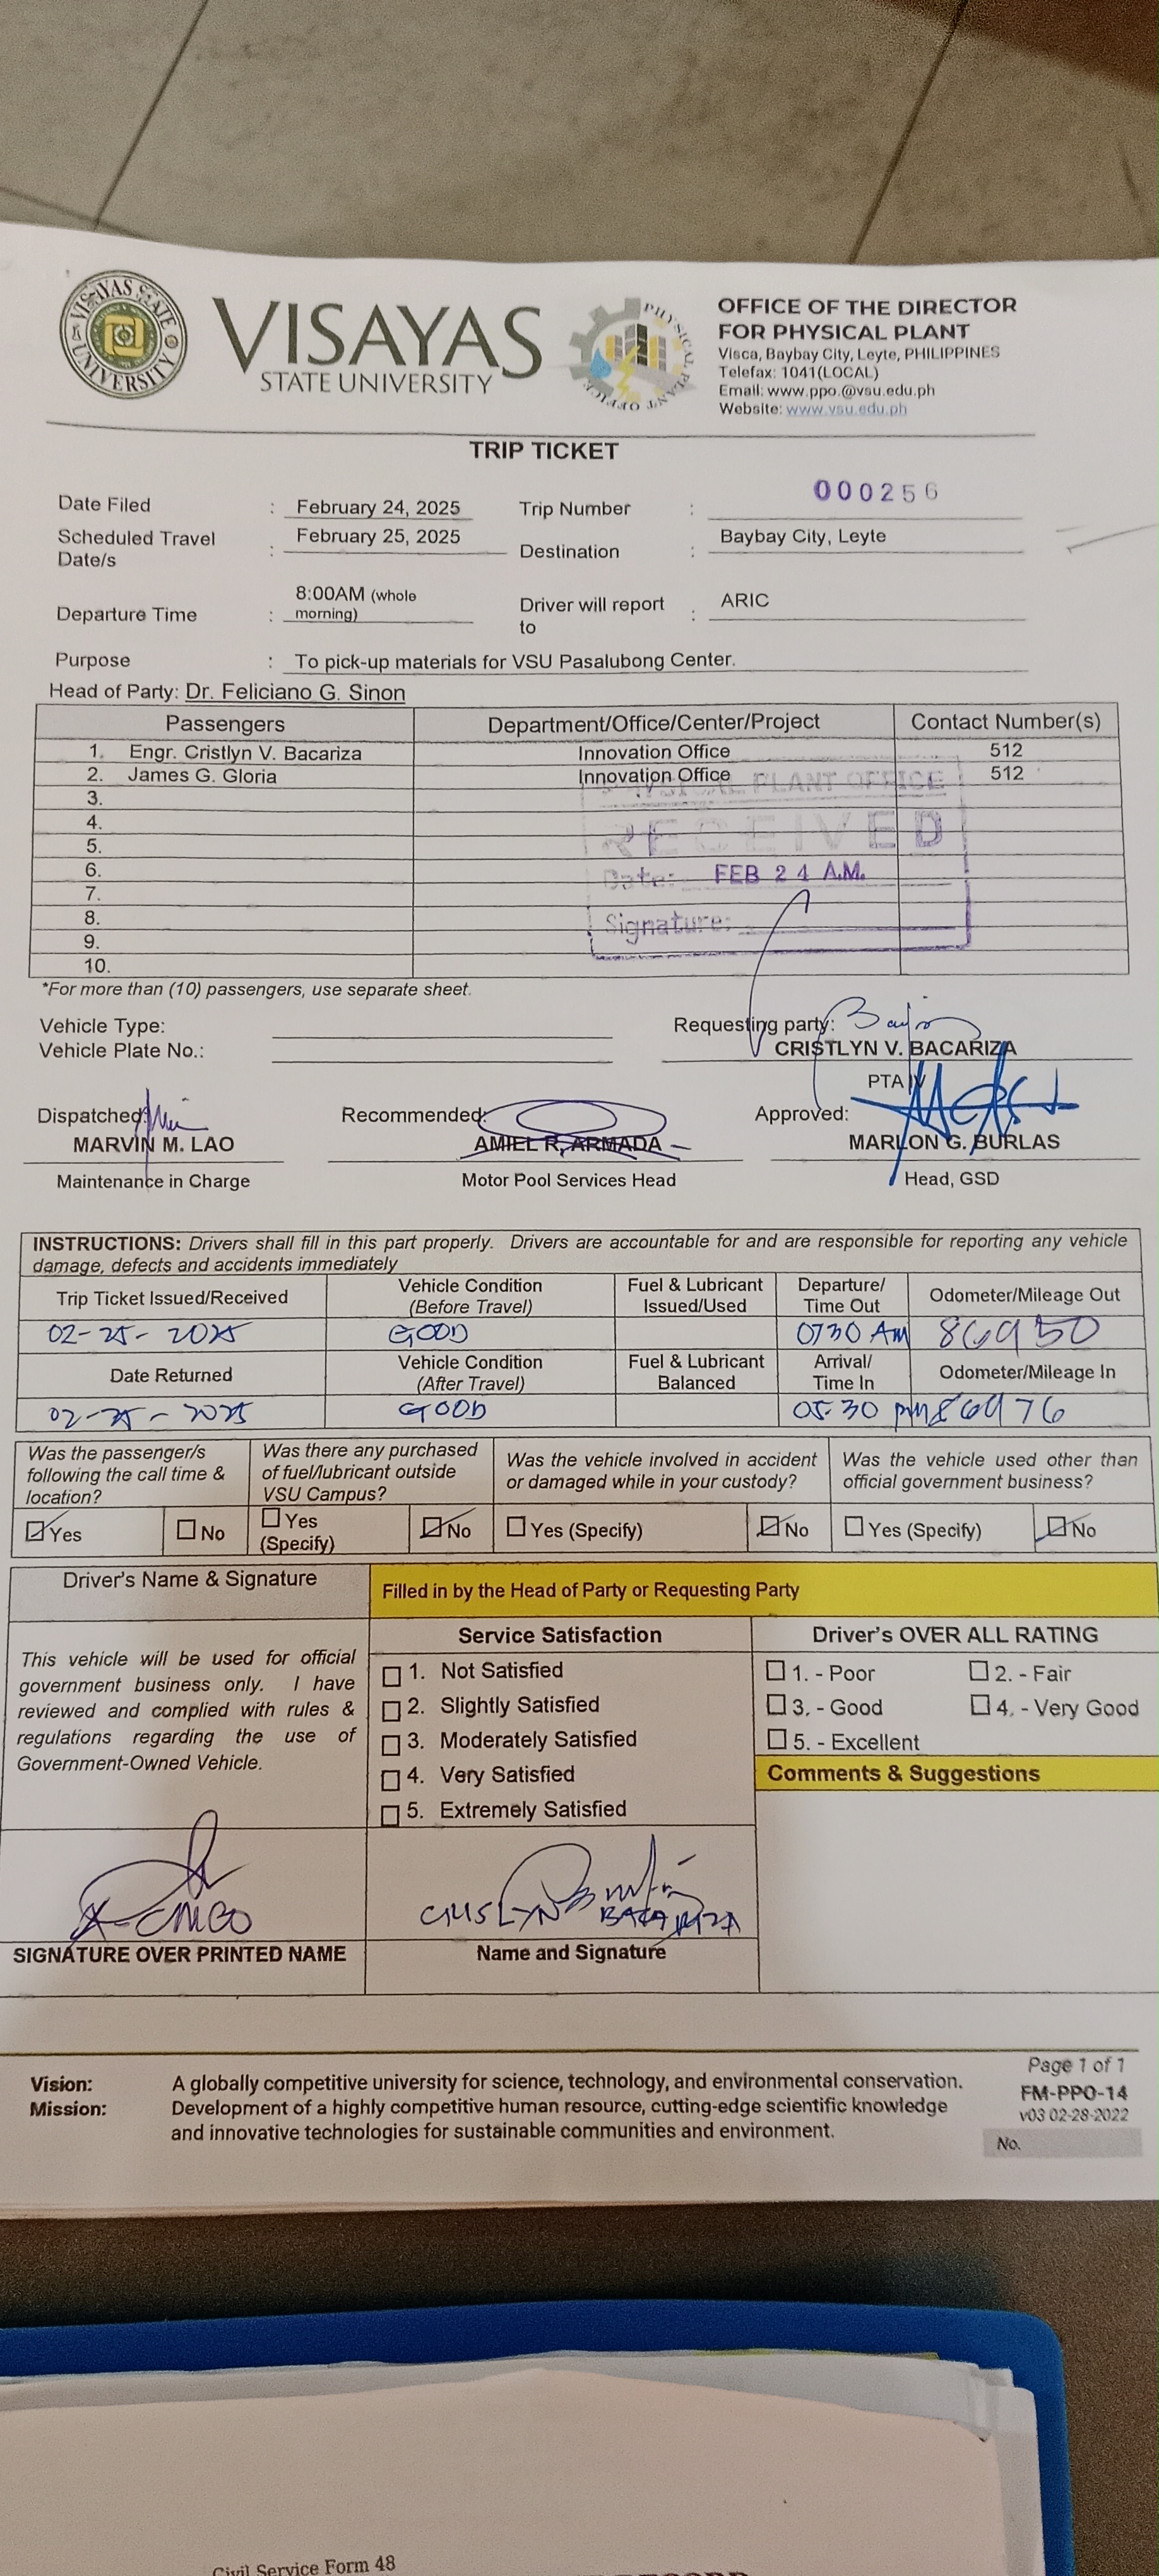 VISAYAS STATE UNIVERSITY
VISAYAS
STATE UNIVERSITY
PHYSICAL PLANT OFFICE
OFFICE OF THE DIRECTOR
FOR PHYSICAL PLANT
Visca, Baybay City, Leyte, PHILIPPINES
Telefax: 1041(LOCAL)
Email: www.ppo.@vsu.edu.ph
Website: www.vsu.edu.ph
TRIP TICKET
Date Filed : February 24, 2025 Trip Number : 000256
Scheduled Travel Date/s : February 25, 2025 Destination : Baybay City, Leyte
Departure Time : 8:00AM (whole morning) Driver will report to : ARIC
Purpose : To pick-up materials for VSU Pasalubong Center.
Head of Party: Dr. Feliciano G. Sinon
Passengers Department/Office/Center/Project Contact Number(s)
1. Engr. Cristlyn V. Bacariza Innovation Office 512
2. James G. Gloria Innovation Office 512
3.
4.
5.
6.
7.
8.
9.
10.
PLANT OFFICE
RECEIVED
Date: FEB 24 A.M.
Signature:
*For more than (10) passengers, use separate sheet.
Vehicle Type:
Vehicle Plate No.:
Requesting party:
CRISTLYN V. BACARIZA
PTA IV
Dispatched: Recommended: Approved:
MARVIN M. LAO AMIEL R. ARMADA MARLON G. BURLAS
Maintenance in Charge Motor Pool Services Head Head, GSD
INSTRUCTIONS: Drivers shall fill in this part properly. Drivers are accountable for and are responsible for reporting any vehicle
damage, defects and accidents immediately
Trip Ticket Issued/Received Vehicle Condition (Before Travel) Fuel & Lubricant Issued/Used Departure/ Time Out Odometer/Mileage Out
02-25-2025 GOOD 0730 AM 86950
Date Returned Vehicle Condition (After Travel) Fuel & Lubricant Balanced Arrival/ Time In Odometer/Mileage In
02-25-2025 GOOD 05:30 pm 86976
Was the passenger/s following the call time & location? Was there any purchased of fuel/lubricant outside VSU Campus? Was the vehicle involved in accident or damaged while in your custody? Was the vehicle used other than official government business?
Yes No Yes (Specify) No Yes (Specify) No Yes (Specify) No
Driver's Name & Signature Filled in by the Head of Party or Requesting Party
This vehicle will be used for official
government business only. I have
reviewed and complied with rules &
regulations regarding the use of
Government-Owned Vehicle.
Service Satisfaction
1. Not Satisfied
2. Slightly Satisfied
3. Moderately Satisfied
4. Very Satisfied
5. Extremely Satisfied
Driver's OVER ALL RATING
1. - Poor 2. - Fair
3. - Good 4. - Very Good
5. - Excellent
Comments & Suggestions
BACARIZA
SIGNATURE OVER PRINTED NAME Name and Signature
Vision: A globally competitive university for science, technology, and environmental conservation.
Mission: Development of a highly competitive human resource, cutting-edge scientific knowledge
and innovative technologies for sustainable communities and environment.
Page 1 of 1
FM-PPO-14
v03 02-28-2022
No.
Civil Service Form 48